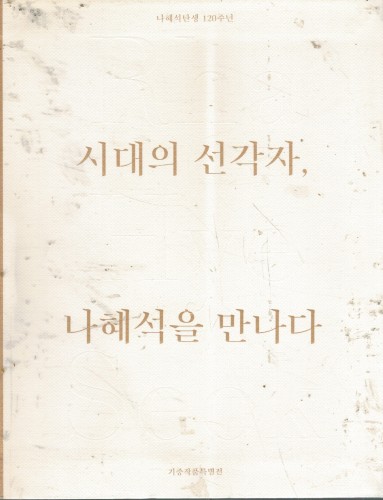 나혜석탄생 120주년
시대의 선각자,
나혜석을 만나다
기증작품특별전